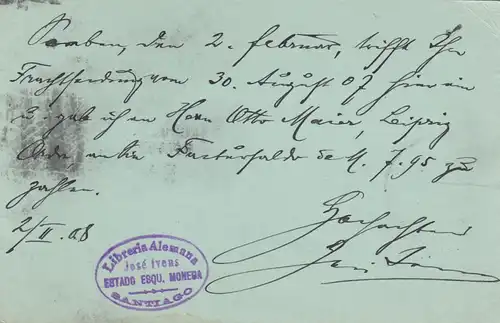 Soeben, den 2. Februar, trifft Ihre
Frachtsendung vom 30. August 07 hier ein
u. gab ich an Herrn Otto Maier, Leipzig
Ordre, an Sie Facturasaldo de M. 7.95 zu
zahlen.
Hochachtend
2/II.08
Libreria Alemana
José Ivens
ESTADO ESQU. MONEDA
SANTIAGO